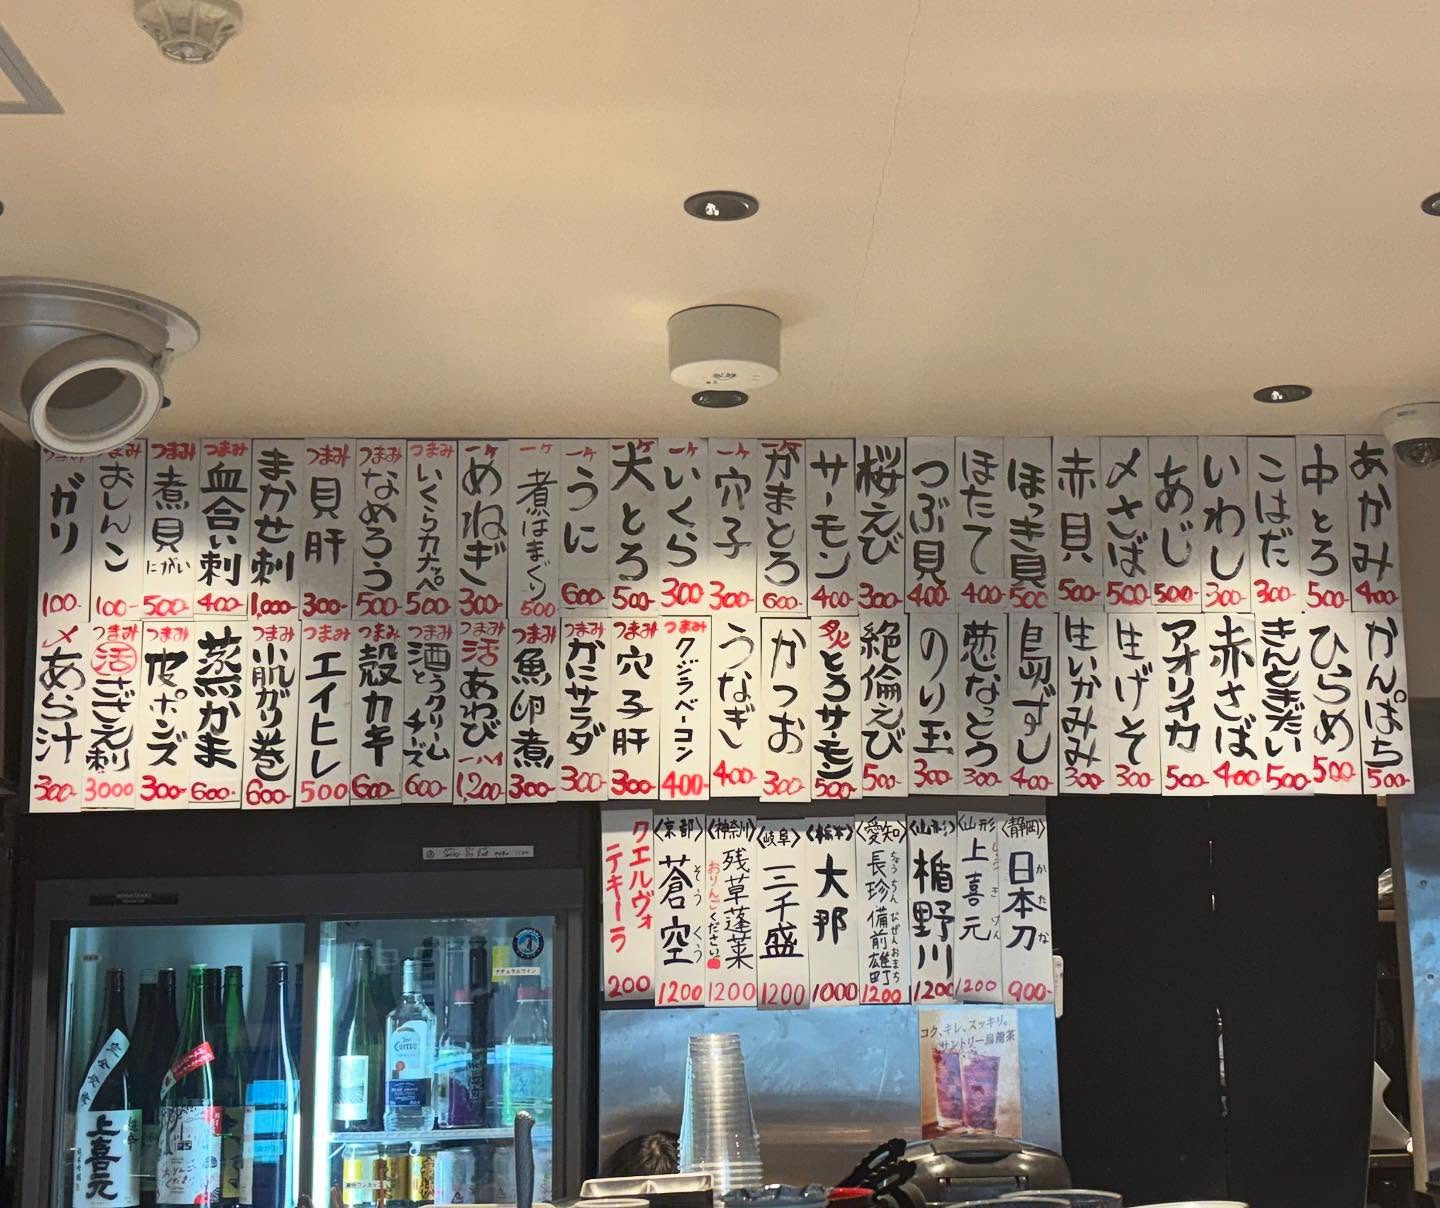 あかみ 400-
中とろ 500-
こはだ 300-
いわし 300-
あじ 500-
〆さば 500-
赤貝 500-
ほっき貝 500
ほたて 400
つぶ貝 400
桜えび 300-
サーモン 400-
一ケ かまとろ 600-
一ケ 穴子 300-
一ケ いくら 300
一ケ 大とろ 500-
一ケ うに 600-
一ケ 煮はまぐり 500
一ケ めねぎ 300-
つまみ いくらカナッペ 500
つまみ なめろう 500-
つまみ 貝肝 300-
まかせ刺 1,000-
つまみ 血合い刺 400-
つまみ 煮貝 にがい 500-
つまみ おしんこ 100-
つまみ ガリ 100-
かんぱち 500-
ひらめ 500-
きんときだい 500-
赤さば 400-
アオリイカ 500-
生げそ 300-
生いかみみ 300-
鳥ずし 400-
葱なっとう 300-
のり玉 300-
絶倫えび 500-
炙とろサーモン 500-
かつお 300-
うなぎ 400-
つまみ クジラベーコン 400-
つまみ 穴子肝 300-
つまみ かにサラダ 300-
つまみ 魚卵煮 300-
つまみ 活あわび 一ハイ 1,200-
つまみ 酒とうクリームチーズ 600-
つまみ 殻カキ 600-
つまみ エイヒレ 500
つまみ 小肌ガリ巻 600-
蒸かま 600-
つまみ 皮ポンズ 300-
つまみ 活さざえ刺 3000
〆あら汁 300-
〈静岡〉 日本刀 かたな 900-
〈山形〉 上喜元 じょうきげん 1200
〈山形〉 楯野川 1200
〈愛知〉 長珍 備前雄町 ちょうちん びぜんおまち 1200
〈栃木〉 大那 1000
〈岐阜〉 三千盛 1200
〈神奈川〉 残草蓬莱 おりんごください 1200
〈京都〉 蒼空 そうくう 1200
クエルヴォ テキーラ 200
コク、キレ、スッキリ。
サントリー烏龍茶
ナチュラルワイン
Cuervo
上喜元